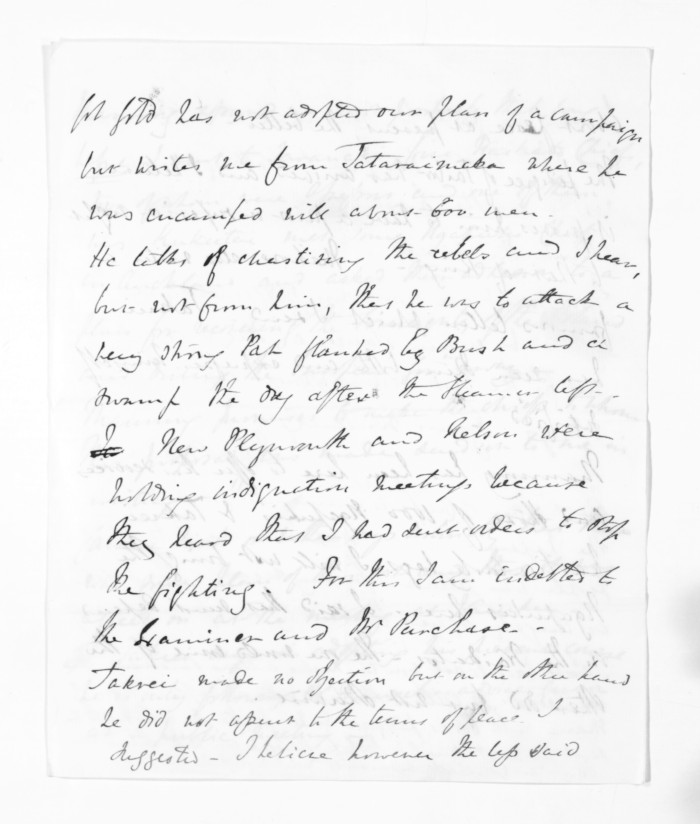 Col Gold has not adopted our plan of a campaign
but writes me from Tataraimaka where he
was encamped with about 600 men.
He talks of chastising the rebels and I hear,
but not from him, that he was to attack a
very strong Pah flanked by Bush and a
swamp the day after the Steamer left -
New Plymouth and Nelson were
holding indignation meetings because
they heard that I had sent orders to stop
the fighting. For this I am indebted to
the Examiner and Mr Purchase -
Takrei made no objection but on the other hand
he did not assent to the terms of peace I
suggested - I believe however the less said